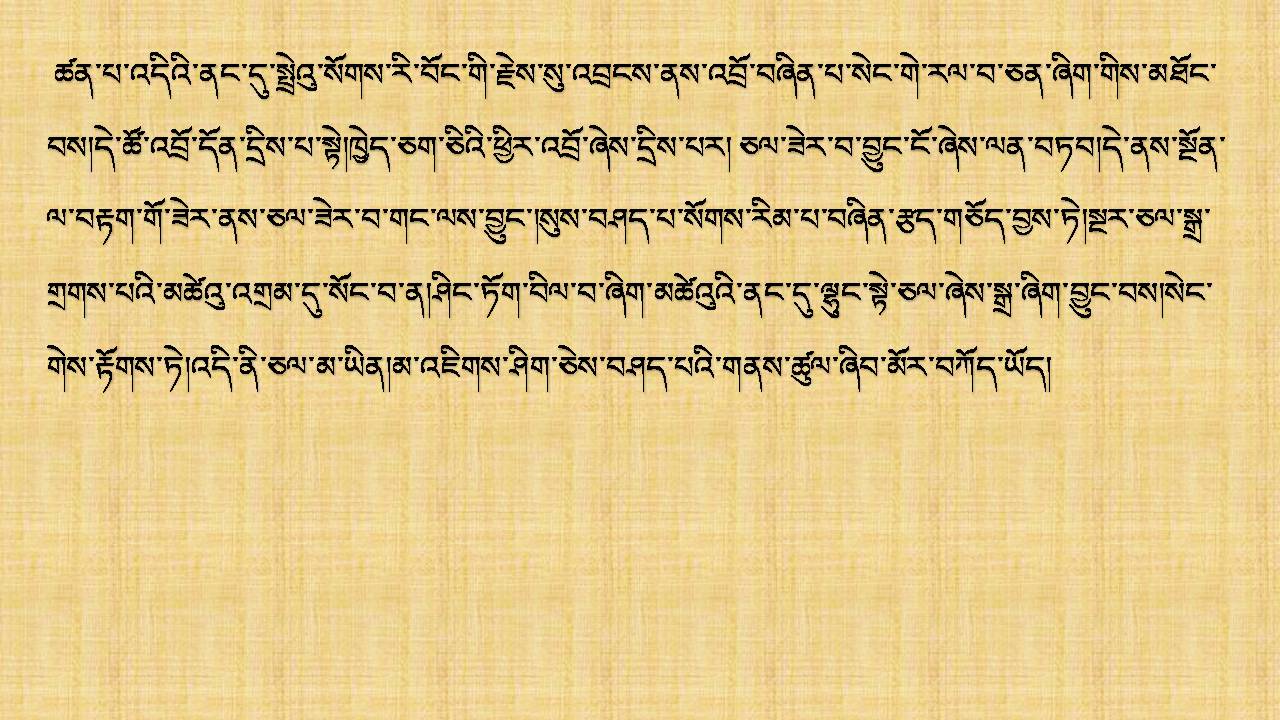 ཚན་པ་འདིའི་ནང་དུ་སྤྲེའུ་སོགས་རི་བོང་གི་རྗེས་སུ་འབྲངས་ནས་འབྲོ་བཞིན་པ་སེང་གེ་རལ་བ་ཅན་ཞིག་གིས་མཐོང་
བས།དེ་ཚོ་འབྲོ་དོན་དྲིས་པ་སྟེ།ཁྱེད་ཅག་ཅིའི་ཕྱིར་འབྲོ་ཞེས་དྲིས་པར། ཅལ་ཟེར་བ་བྱུང་ངོ་ཞེས་ལན་བཏབ།དེ་ནས་སྔོན་
ལ་བརྟག་གོ་ཟེར་ནས་ཅལ་ཟེར་བ་གང་ལས་བྱུང་།སུས་བཤད་པ་སོགས་རིམ་པ་བཞིན་རྩད་གཅོད་བྱས་ཏེ།སྔར་ཅལ་སྒྲ་
གྲགས་པའི་མཚེའུ་འགྲམ་དུ་སོང་བ་ན།ཤིང་ཏོག་བིལ་བ་ཞིག་མཚེའུའི་ནང་དུ་ལྷུང་སྟེ་ཅལ་ཞེས་སྒྲ་ཞིག་བྱུང་བས།སེང་
གེས་རྟོགས་ཏེ།འདི་ནི་ཅལ་མ་ཡིན།མ་འཇིགས་ཤིག་ཅེས་བཤད་པའི་གནས་ཚུལ་ཞིབ་མོར་བཀོད་ཡོད།